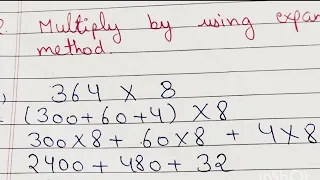 Multiply by using
method.
364 × 8
(300+60+4) ×8
300×8 + 60×8 + 4×8
2400 + 480 + 32